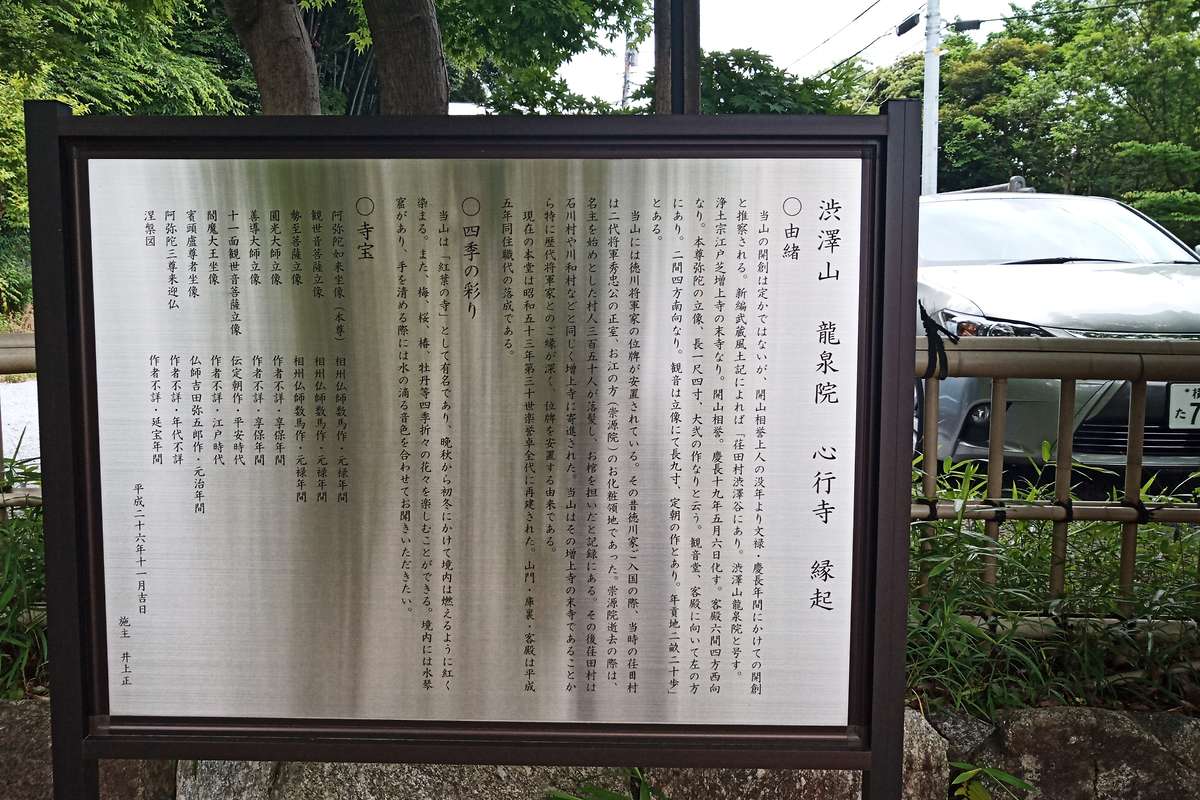 渋澤山 龍泉院 心行寺 縁起
〇由緒
当山の開創は定かではないが、開山相誉上人の没年より文禄・慶長年間にかけての開創
と推察される。新編武蔵風土記によれば「荏田村渋澤谷にあり。渋澤山龍泉院と号す。
浄土宗江戸芝増上寺の末寺なり。開山相誉。慶長十九年五月六日化す。客殿六間四方西向
なり。本尊弥陀の立像、長一尺四寸、大弐の作なりと云う。観音堂、客殿に向いて左の方
にあり。二間四方南向なり。観音は立像にて長九寸、定朝の作とあり。年貢地二畝二十歩」
とある。
当山には徳川将軍家の位牌が安置されている。その昔徳川家ご入国の際、当時の荏田村
は二代将軍秀忠公の正室、お江の方（崇源院）のお化粧領地であった。崇源院逝去の際は、
名主を始めとした村人三百五十人が落髪し、お棺を担いだと記録にある。その後荏田村は
石川村や川和村などと同じく増上寺に寄進された。当山はその増上寺の末寺であることか
ら特に歴代将軍家とのご縁が深く、位牌を安置する由来である。
現在の本堂は昭和五十三年第三十世楽誉卓全代に再建された。山門・庫裏・客殿は平成
五年同住職代の落成である。
〇四季の彩り
当山は「紅葉の寺」として有名であり、晩秋から初冬にかけて境内は燃えるように紅く
染まる。また、梅、桜、椿、牡丹等四季折々の花々を楽しむことができる。境内には水琴
窟があり、手を清める際には水の滴る音色を合わせてお聞きいただきたい。
〇寺宝
阿弥陀如来坐像（本尊） 相州仏師数馬作・元禄年間
観世音菩薩立像 相州仏師数馬作・元禄年間
勢至菩薩立像 相州仏師数馬作・元禄年間
圓光大師立像 作者不詳・享保年間
善導大師立像 作者不詳・享保年間
十一面観世音菩薩立像 伝定朝作・平安時代
閻魔大王坐像 作者不詳・江戸時代
賓頭盧尊者坐像 仏師吉田弥五郎作・元治年間
阿弥陀三尊来迎仏 作者不詳・年代不詳
涅槃図 作者不詳・延宝年間
平成二十六年十一月吉日
施主 井上正
た 7